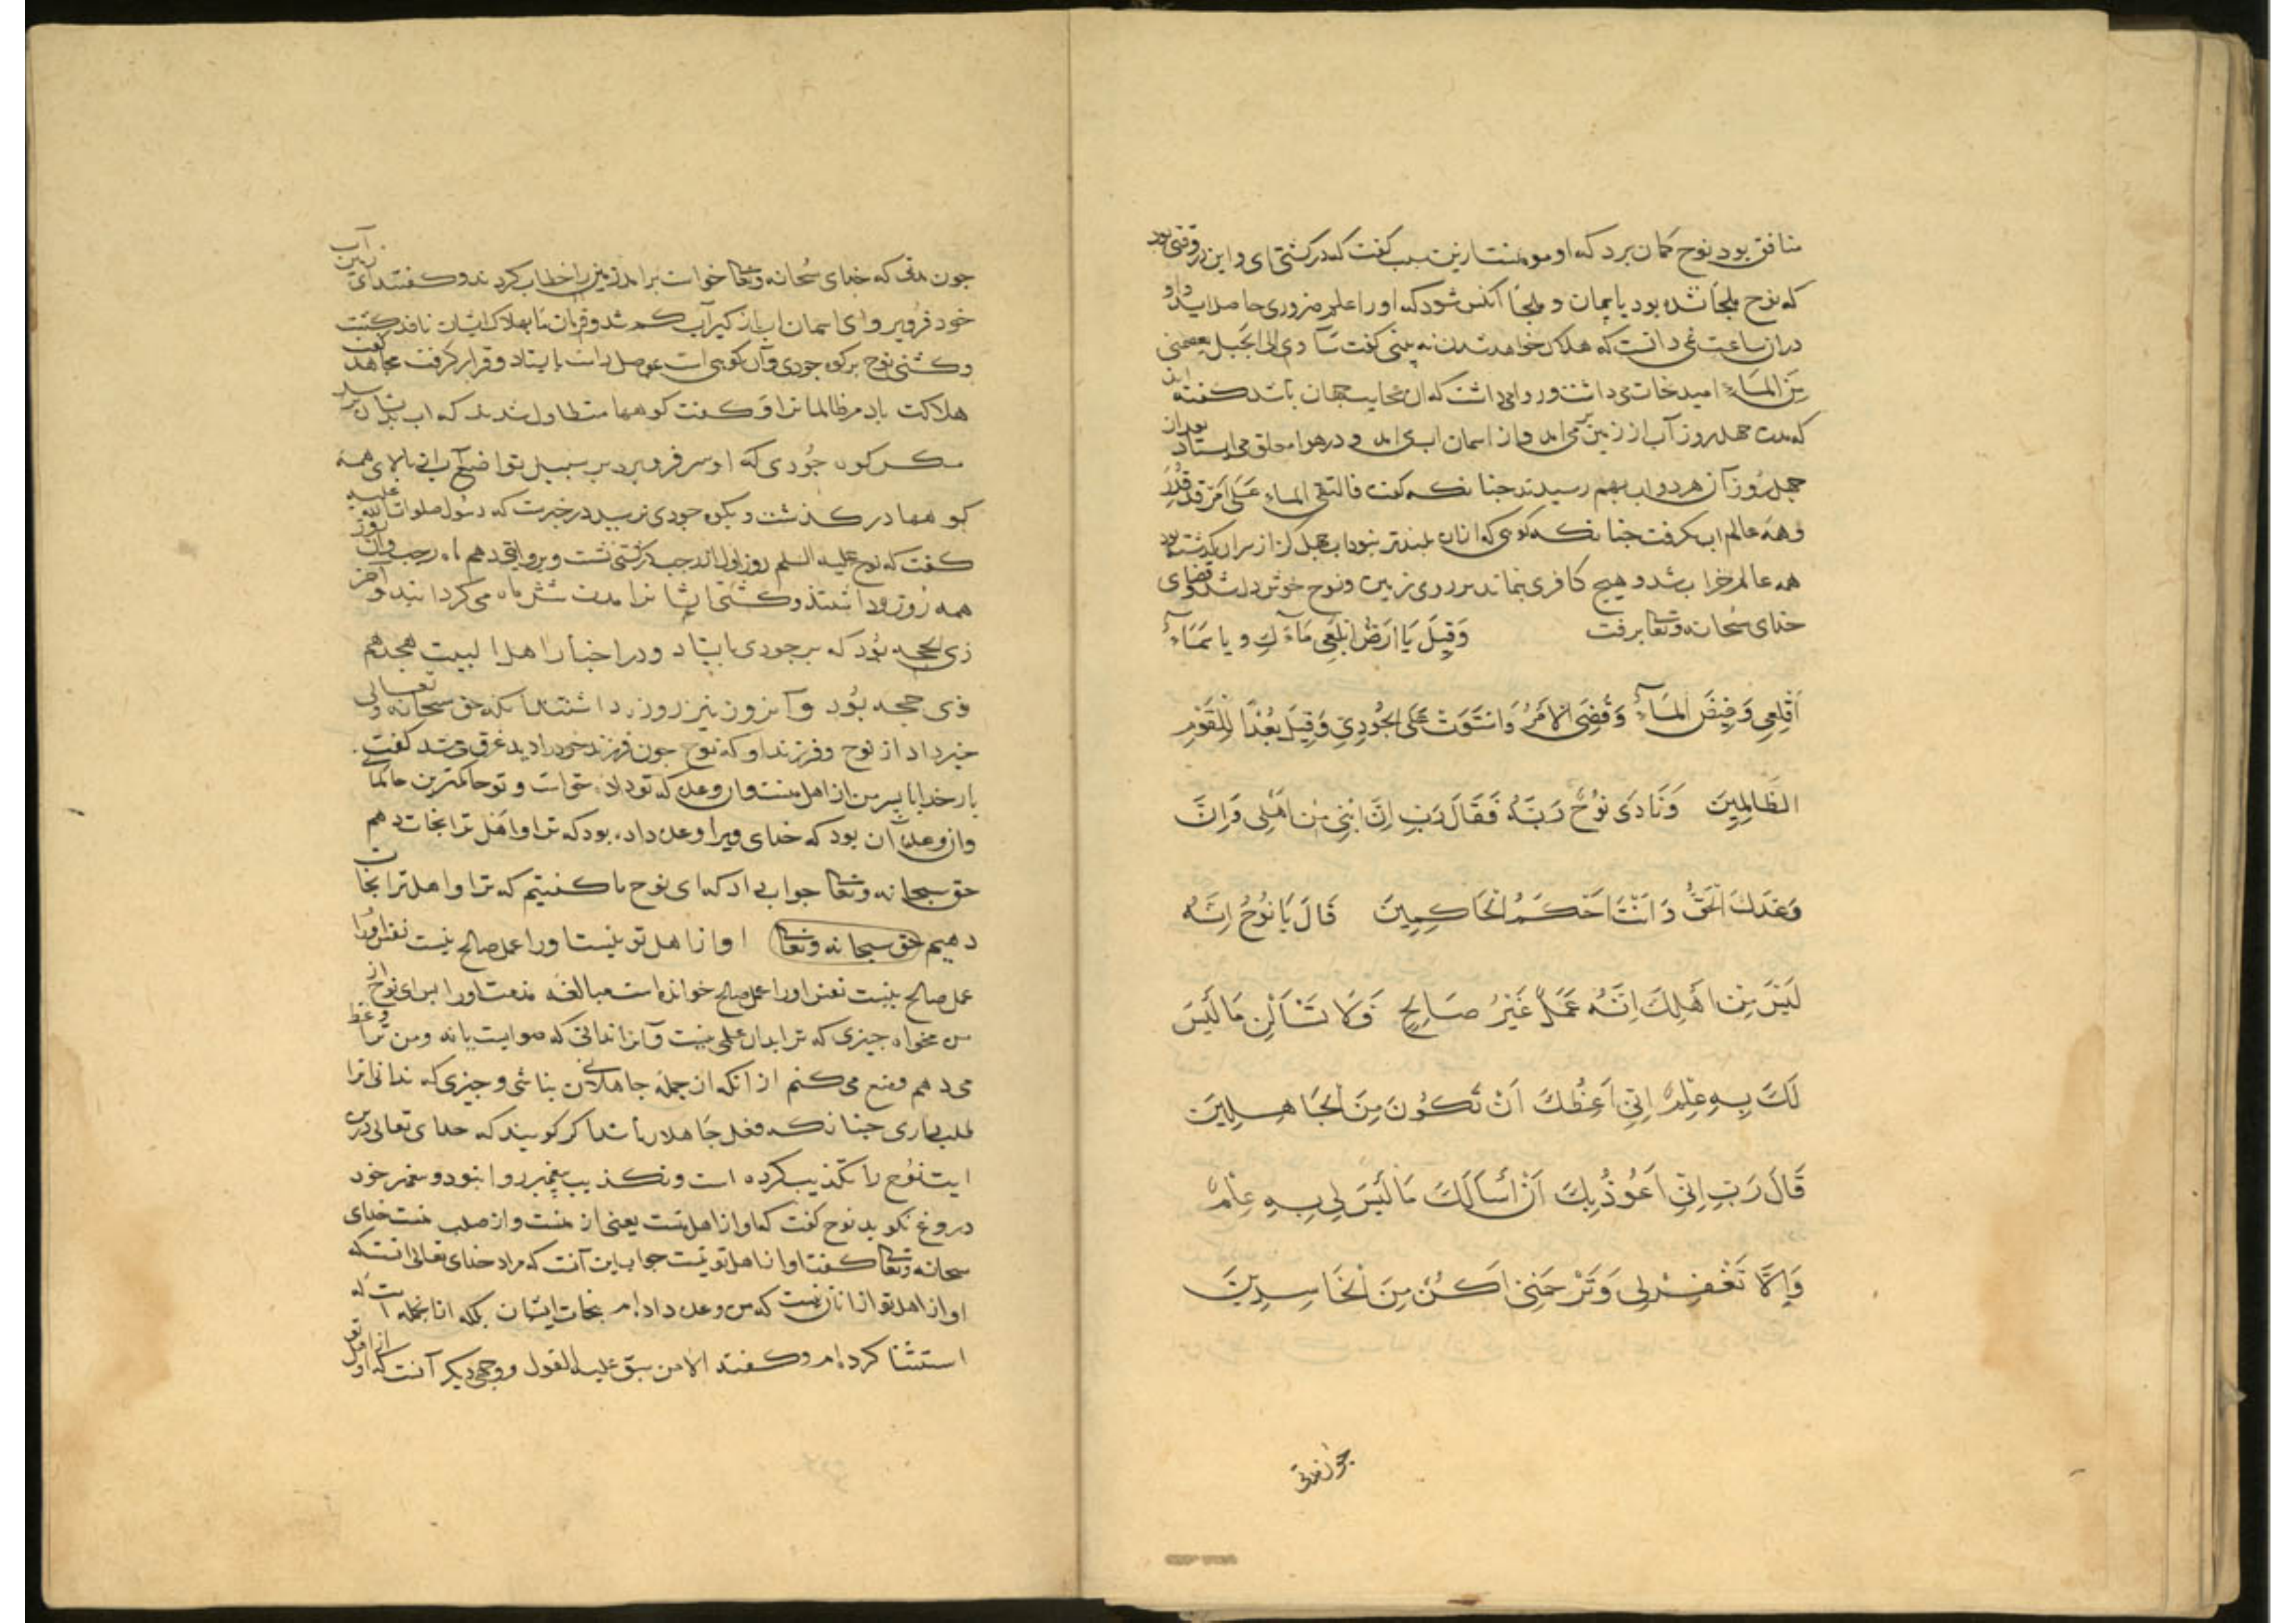 منافق بود نوح کمان برد که او مومنست ازین سبب کفت که در کشتی ای و این در وقتی بود
که نوح ملجأ نشده بود بایمان و ملجأ آنکس شود که او را علم ضروری حاصل اید و او
دران ساعت نمی دانست که هلاک خواهد شدن نه بینی کفت سآوی الی الجبل یعصمنی
من المآء امید نجات می داشت و روا می داشت که ان عجایب جهان باشد کفته اند
که مدت چهل روز آب از زمین بر می امد و از اسمان اب می امد و در هوا معلق می ایستاد بعد از
چهل روز آن هر دو اب بهم رسیدند چنانکه کفت فالتقی الماء علی امر قد قدر
و همه عالم اب بکرفت چنانکه کوهی که ازان بلندتر نبود اب چهل کز از سر ان بکذشته بود
همه عالم خراب شد و هیچ کافری نماند بر روی زمین و نوح خوش دل شد و قضای
خدای سبحانه وتعا برفت وَقِيلَ يَا اَرْضُ ابْلَعِي مَآءَكِ و يا سَمَآءُ
اَقْلِعِي وَغِيضَ الْمَآءُ وَقُضِيَ الْاَمْرُ وَاسْتَوَتْ عَلَى الْجُودِيِّ وَقِيلَ بُعْدًا لِلْقَوْمِ
الظَّالِمِينَ وَنَادَى نُوحٌ رَبَّهُ فَقَالَ رَبِّ اِنَّ ابْنِي مِنْ اَهْلِي وَاِنَّ
وَعْدَكَ الْحَقُّ وَ اَنْتَ اَحْكَمُ الْحَاكِمِينَ قَالَ يَا نُوحُ اِنَّهُ
لَيْسَ مِنْ اَهْلِكَ اِنَّهُ عَمَلٌ غَيْرُ صَالِحٍ فَلَا تَسْاَلْنِ مَا لَيْسَ
لَكَ بِهِ عِلْمٌ اِنِّي اَعِظُكَ اَنْ تَكُونَ مِنَ الْجَاهِلِينَ
قَالَ رَبِّ اِنِّي اَعُوذُ بِكَ اَنْ اَسْاَلَكَ مَا لَيْسَ لِي بِهِ عِلْمٌ
وَاِلَّا تَغْفِرْ لِي وَتَرْحَمْنِي اَكُنْ مِنَ الْخَاسِرِينَ
چون مدتی
چون مدتی که خدای سبحانه وتعا خواست برامد زمین را خطاب کردند و کفتند ای زمین آب
خود فرو بر و ای اسمان اب باز کیر آب کم شد و فرمان ما بهلاک ایشان نافذ کشت
و کشتی نوح بر کوه جودی و آن کوهی است بموصل راست بایستاد و قرار کرفت مجاهد کفت
هلاکت باد مر ظالمانرا و کفت کوهها متطاول شدند که اب بدیشان نرسد
مکر کوه جودی که او سر فرو برد بر سبیل تواضع آب از بالای همه
کوهها در کذشت و بکوه جودی نرسید در خبرست که رسول صلوات الله علیه
کفت که نوح علیه السلم روز اول از رجب در کشتی نشست و بروایتی دهم ماه رجب و ان روز
همه روزه داشتند و کشتی ایشانرا مدت شش ماه می کردانید و اخر
ذی الحجه بود که بر جودی بایستاد و در اخبار اهل البیت هجدهم
ذی حجه بود و آن روز نیز روزه داشتند انکه حق سبحانه و تعالی
خبر داد از نوح و فرزند او که نوح چون فرزند خود را دید غرق می شد کفت
بار خدایا پسر من از اهل منست و ان وعده که تو داده حق است و تو حاکمترین حاکمانی
وان وعده آن بود که خدای ویرا وعده داده بود که ترا و اهل ترا نجات دهم
حق سبحانه وتعا جواب داد که ای نوح ما کفتیم که ترا و اهل ترا نجات
دهیم حق سبحانه وتعا او از اهل تو نیست او را عمل صالح نیست نفس او را
عمل صالح نیست نفس او را عمل صالح خوانده است مبالغه مذمت او را برای نوح از
من مخواه چیزی که ترا بدان علمی نیست و آنرا ندانی که صوابست یا نه و من ترا وعظ
می دهم و منع می کنم از آنکه از جمله جاهلان بناشی و چیزی که ندانی انرا
طلب داری چنانکه فعل جاهلان باشد اکر کویند که خدای تعالی درین
ایت نوح را تکذیب کرده است و تکذیب پیغمبر روا نبود و پیغمبر خود
دروغ نکوید نوح کفت که او از اهل منست یعنی از منست و از صلب منست خدای
سبحانه وتعا کفت او از اهل تو نیست جواب این آنست که مراد خدای تعالی انست که
او از اهل تو از انان نیست که من وعده داده ام بنجات ایشان بلکه از انجمله است که
استثنا کرده ام و کفته الا من سبق علیه القول و وجهی دیکر آنست که او از اهل تو